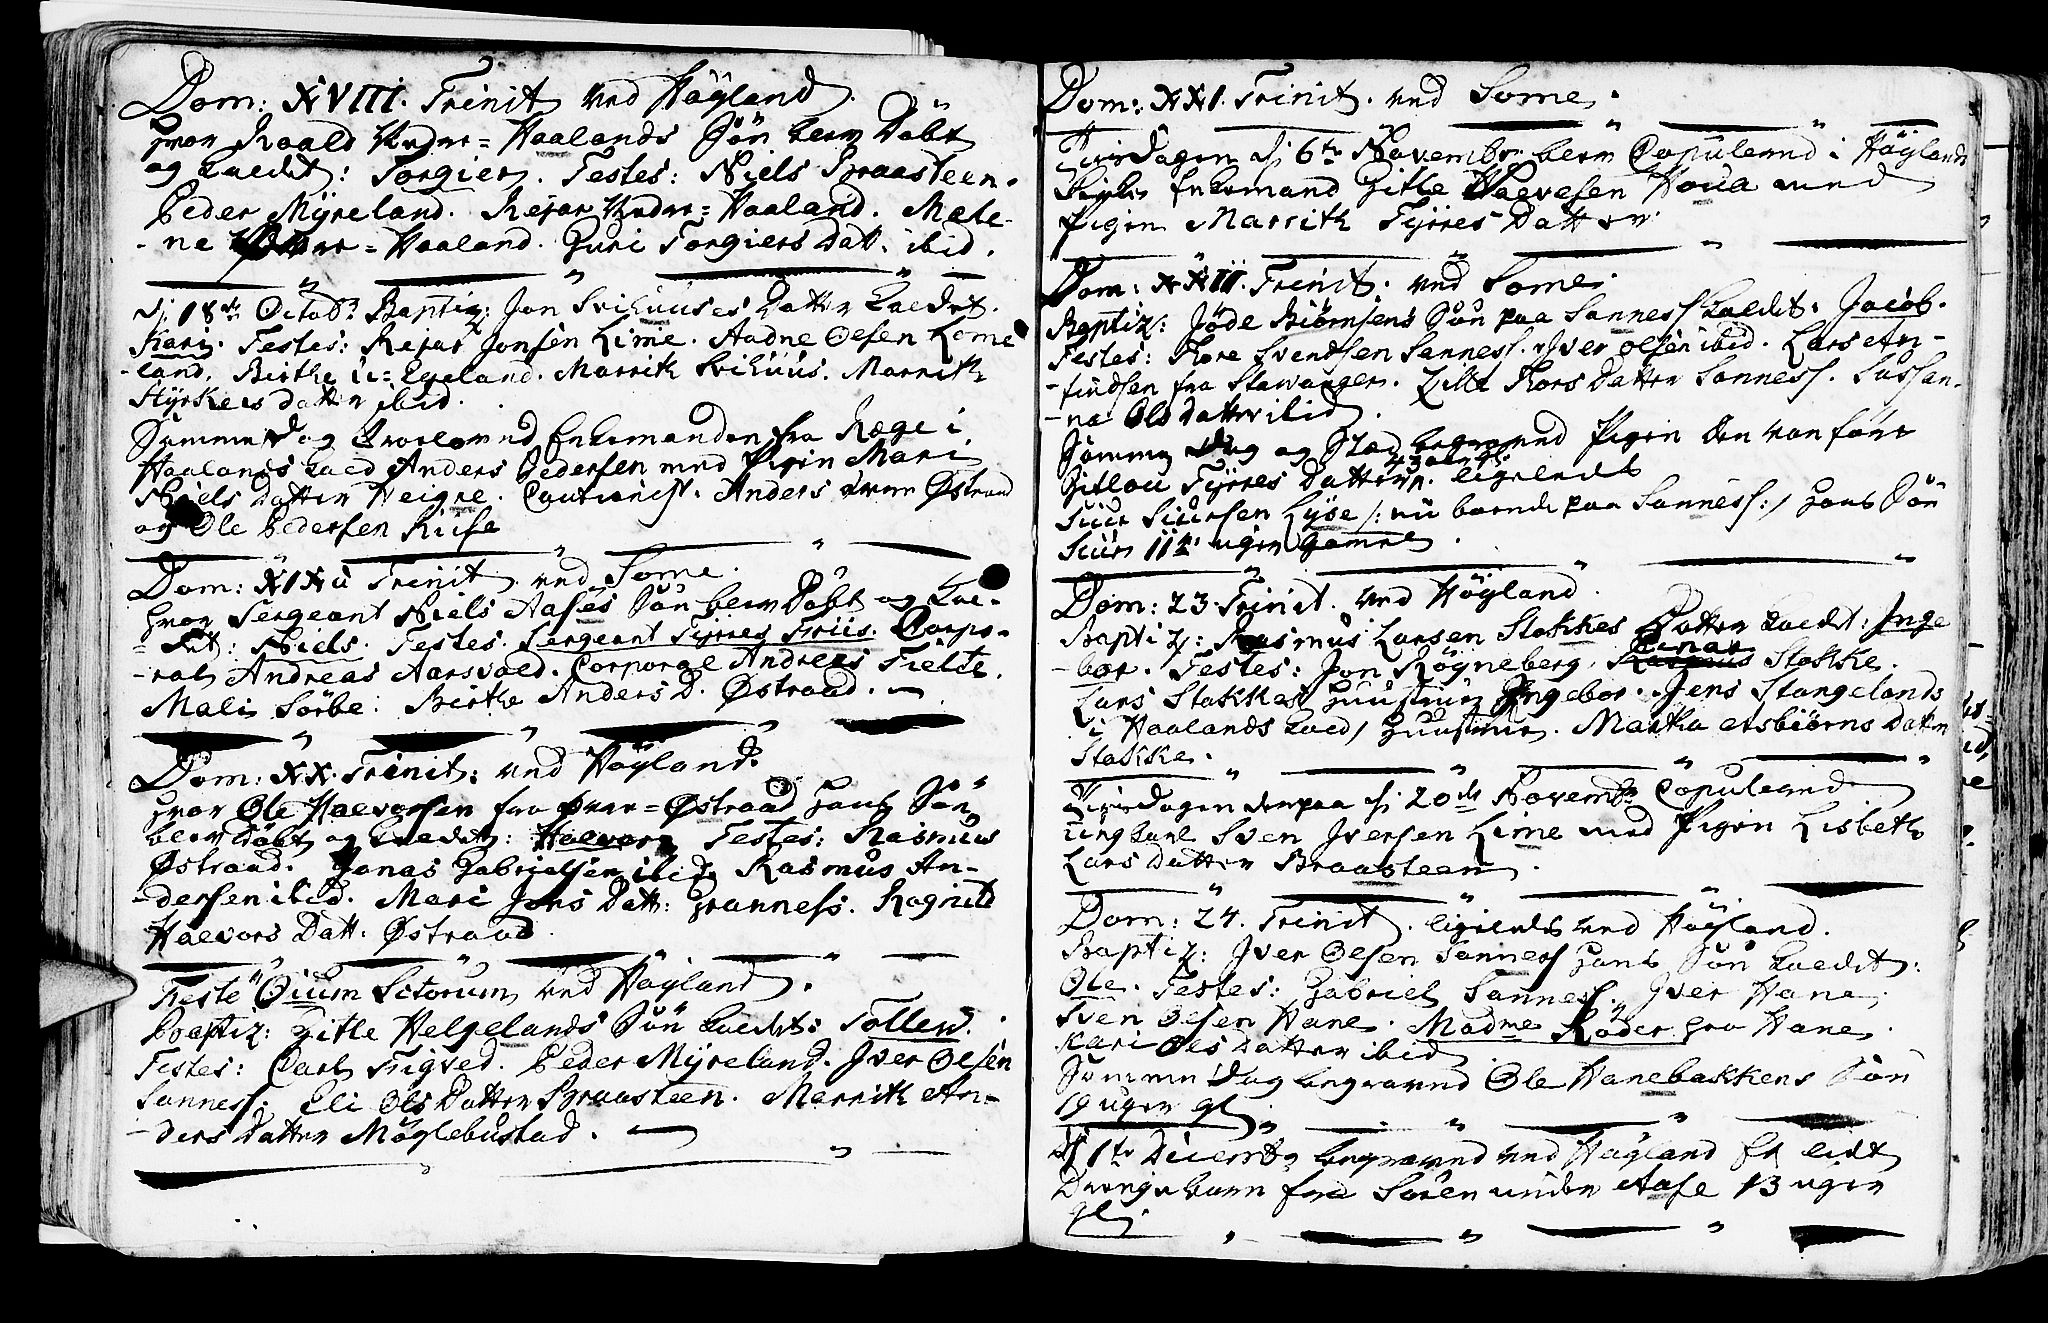 Dom: XVIII. Trinit ved Höyland.
hvor Roald Undr=Haalands Sön blev Döbt
og kaldt: Torgier. Testes: Niels Braasteen.
Peder Myreland. Rejar Undr=Haaland. Male-
-ne =Haaland. Guri Torgiers Dat. ibid.
dj 18de Octobr Baptiz: Jon Sviluuses Datter kaldet.
Kari. Testes: Rejar Jonsen Lime. Aadne Olsen Lome
-land. Birthe Egeland. Marrith Sviluus. Marrith
Styrkers datter ibid.
Samme Dag Troloved Enkemanden fra Rege i
Haalands Sogn Anders Pedersen med Pigen Mari
Niels Datter Heigre. Cautionist. Anders Östraad
og Ole Pedersen Riise
Dom: XIX Trinit ved Some.
hvor Sergeant Niels Aases Sön blev Döbt og kal-
=det: Niels. Testes. Sergeant Tyrres Friis. Corpo-
-ral Andreas Aarsvold. Corporal Andreas Fielde.
Mali Sörbe. Birthe Anders D. Östraad.
Dom: XX. Trinit: ved Höyland.
hvor Ole Halvorsen fra Övre=Östraad hans Sön
blev Döbt og kaldet: Halvor. Testes: Rasmus
Östraad. Jonas Gabrielsen ibid. Rasmus An-
-dersen ibid. Mari Jens Datt: Granness. Ragnild
Halvors Datt. Östraad
Festo Oium Sctorum ved Höyland.
Baptiz: Gitle Helgelands Sön kaldet: Tollev.
Testes: Carl Frigsted. Peder Myreland. Iver Olsen
Sanness. Eli Ols Datter Braasteen. Marrith An-
-ders Datter Möglebustad.
Dom: XXI. Trinit. ved Some.
Tiirsdagen dj 6te Novembr blev Copulered i Höylands
Kirke Enkemand Gitle Halvesen Hova med
Pigen Marrith Tyrres Datter
Dom: XXII. Trinit. ved Some.
Baptiz: Jöde Biörnsens Sön paa Sanness kaldet: Jacob.
Testes: Tore Svendsen Sanness. Iver olsen ibid. Lars An-
-findsen fra Stavanger. Zille Tors Datter Sanness. Sussan-
-na Ols datter ibid.
Samme Dag og Stad begraved Pigen den vanföre
Gitlou Tyrres Datter ligeledes
Siur Siursen Lyse /: nu boende paa Sanness:/ hans Sön
Siur 11te uger Gamel.
Dom: 23 Trinit. ved Höyland.
Baptiz: Rasmus Larsen Stokkes Datter kaldet: Inge
-bor. Testes: Jon Röyneberg. Einar Stokke.
Lars Stokkes Huustrue Ingebor. Jens Stangelands
i Haalands Sogn, Huustrue. Martha Asbiörns Datter
Stokke.
Tiirsdagen derpaa dj 20de Novembr Copulered
ungkarl Sven Iversen Lime med Pigen Lisbeth
Lars Datter Braasteen.
Dom: 24. Trinit. ligeledes ved Höyland.
Baptiz: Iver Olsen Sanness hans Sön kaldet:
Ole. Testes: Gabriel Sanness. Iver Hane,
Sven Olsen Hane. Madme Röder fra Hane.
Kari Ols Datter ibid
Samme Dag begraved Ole Hanebakkens Sön
19 uger gl.
dj 1te Decembr begraved ved Höyland Et lidt
Drenge barn fra Sören under Aase 13 uger
gl.